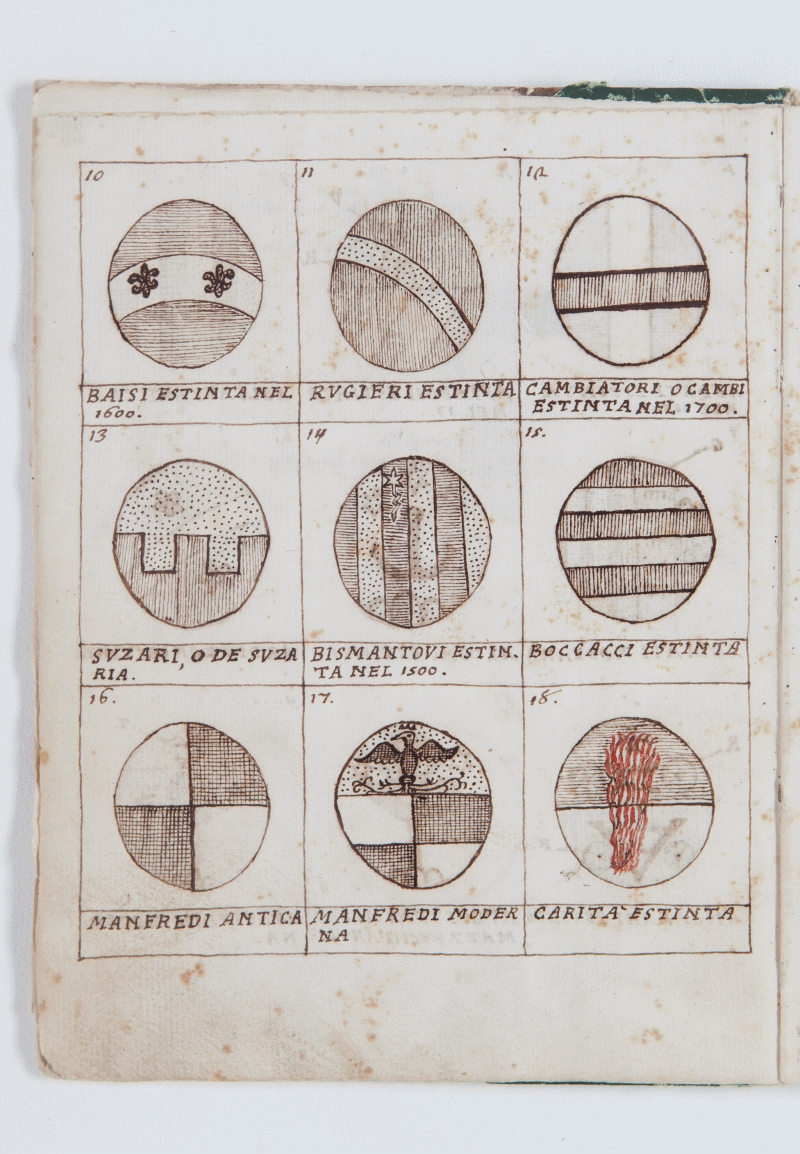 10
11
12
BAISI ESTINTA NEL
1600.
RVGIERI ESTINTA
CAMBIATORI O CAMBI
ESTINTA NEL 1700.
13
14
15.
SVZARI, O DE SVZA
RIA.
BISMANTOVI ESTIN.
TA NEL 1500.
BOCCACCI ESTINTA
16.
17.
18.
MANFREDI ANTICA
MANFREDI MODER
NA
CARITA` ESTINTA